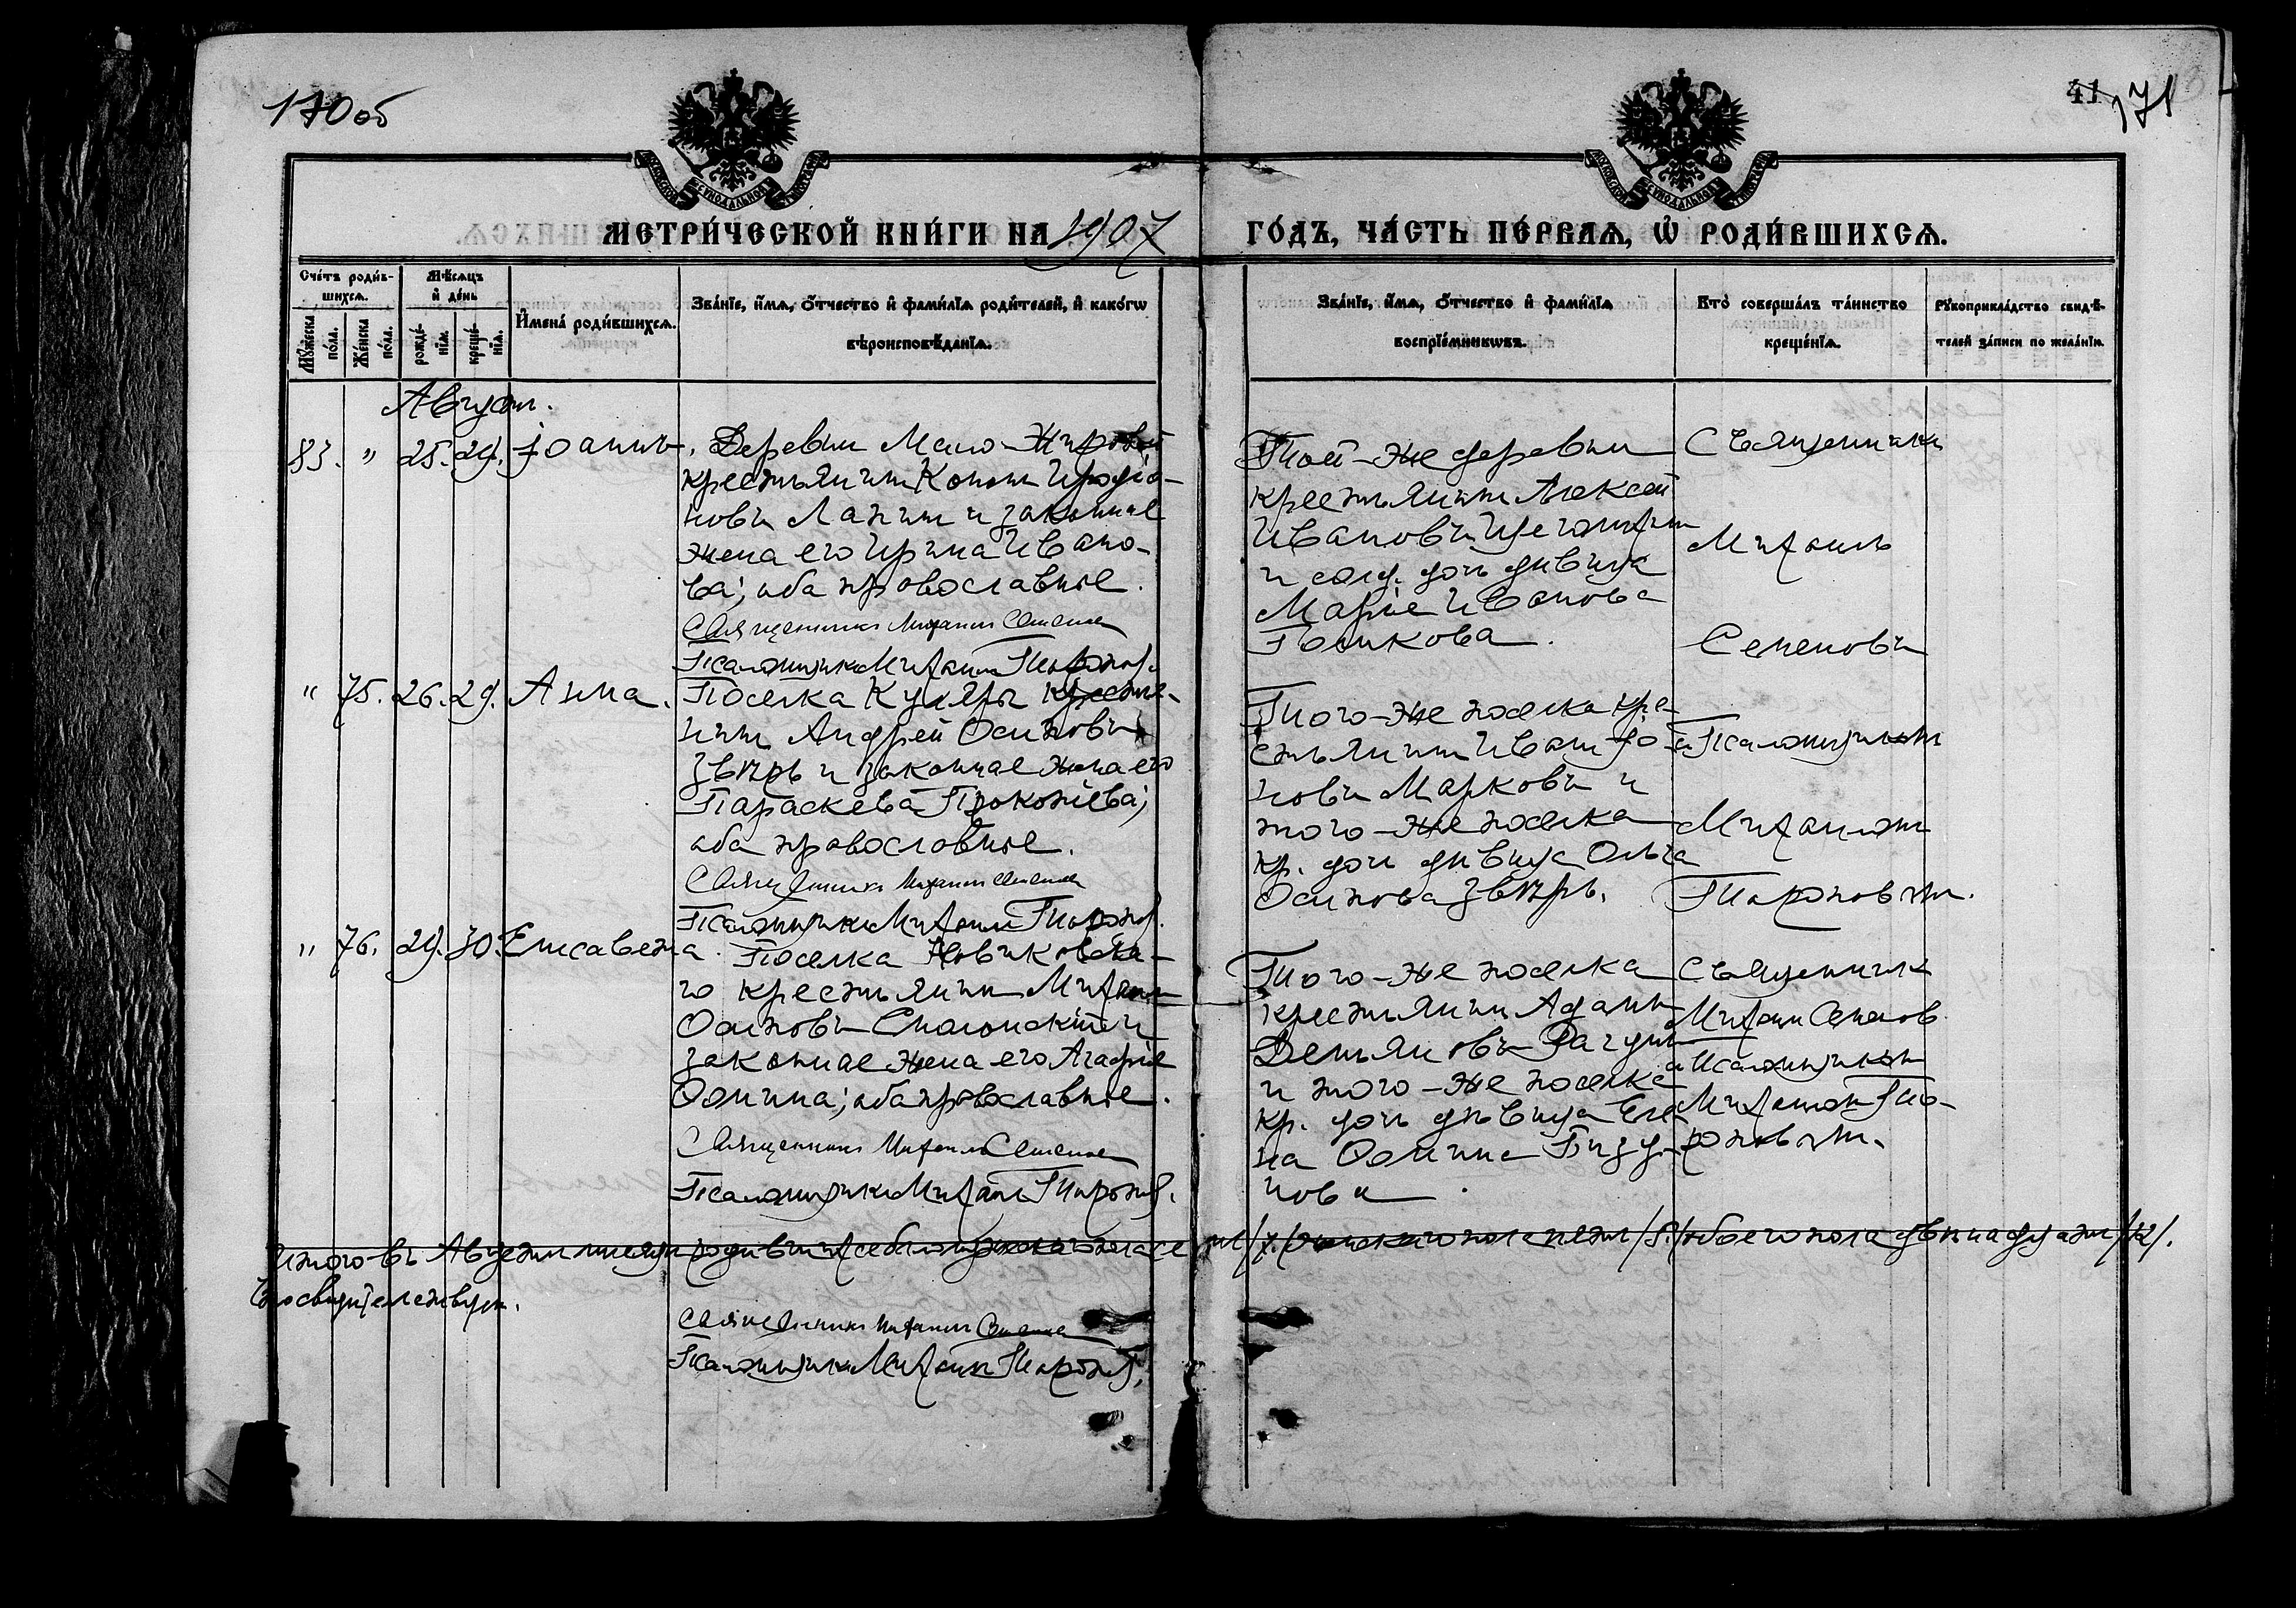 170 об
41 171
МЕТРИ́ЧЕСКОЙ КНИ́ГИ НА 1907 ГО́ДЪ, ЧА́СТЬ ПЕ́РВАѦ, Ѡ҆ РОДИ́ВШИХСѦ.
Сче́тъ роди́в-
шихсѧ.
Мѣ́сѧцъ
и҆ де́нь
Мꙋ́жеска по́ла.
Же́нска по́ла.
рожде́-
нїѧ.
креще́-
нїѧ.
И҆мена̀ роди́вшихсѧ.
Зва́нїе, и҆́мѧ, ѻ҆́тчество и҆ фами́лїѧ роди́телей, и҆ како́гѡ
вѣроисповѣ́данїѧ.
Зва́нїе, и҆́мѧ, ѻ҆́тчество и҆ фами́лїѧ
воспрїе́мникѡвъ.
Кто̀ соверша́лъ та́инство
креще́нїѧ.
Рꙋкоприкла́дство свидѣ́-
телей за́писи по жела́нїю.
Августъ.
83. " 25. 29. Іоаннъ.
Деревни Мало-
крестьянинъ Кононъ Иродіо-
новъ Лапинъ и законная
жена его Ирина Ивано-
ва; оба православные.
Священникъ Михаилъ Семенов
Псаломщикъ Михаилъ
Той-же деревни
крестьянинъ Алексей
Ивановъ
и солд. дочь девица
Марія Иванова
Священникъ
Михаилъ
Семеновъ
" 75. 26. 29. Анна.
Поселка крестья-
нинъ Андрей Осиповъ
Звѣрь и законная жена его
Параскева Прокопіева;
оба православные.
Священникъ Михаилъ Семенов
Псаломщикъ Михаилъ
Того-же поселка кре-
стьянинъ Иванъ
новъ Марковъ и
того-же поселка
кр. дочь дѣвица Ольга
Осипова Звѣрь.
съ Псаломщикомъ
Михаиломъ
" 76. 29. 30. Елисавета.
Поселка Новиковска-
го крестьянинъ Михаилъ
Осиповъ и
законная жена его Агафія
Фомина; оба православные.
Священникъ Михаилъ Семенов
Псаломщикъ Михаилъ
Того-же поселка
крестьянинъ Адамъ
Демьяновъ
и того-же поселка
кр. дочь дѣвица Еле-
на Фомина
нова.
Священник
Михаил Семенов
с псаломщикомъ
Михаиломъ
Итого въ Августѣ мѣсяцѣ родившихся было мужеска пола семь /7/ женскаго пола пять /5/ обоего пола двѣнадцать /12/.
свидѣтельствуем.
Священникъ Михаилъ Семенов
Псаломщикъ Михаилъ